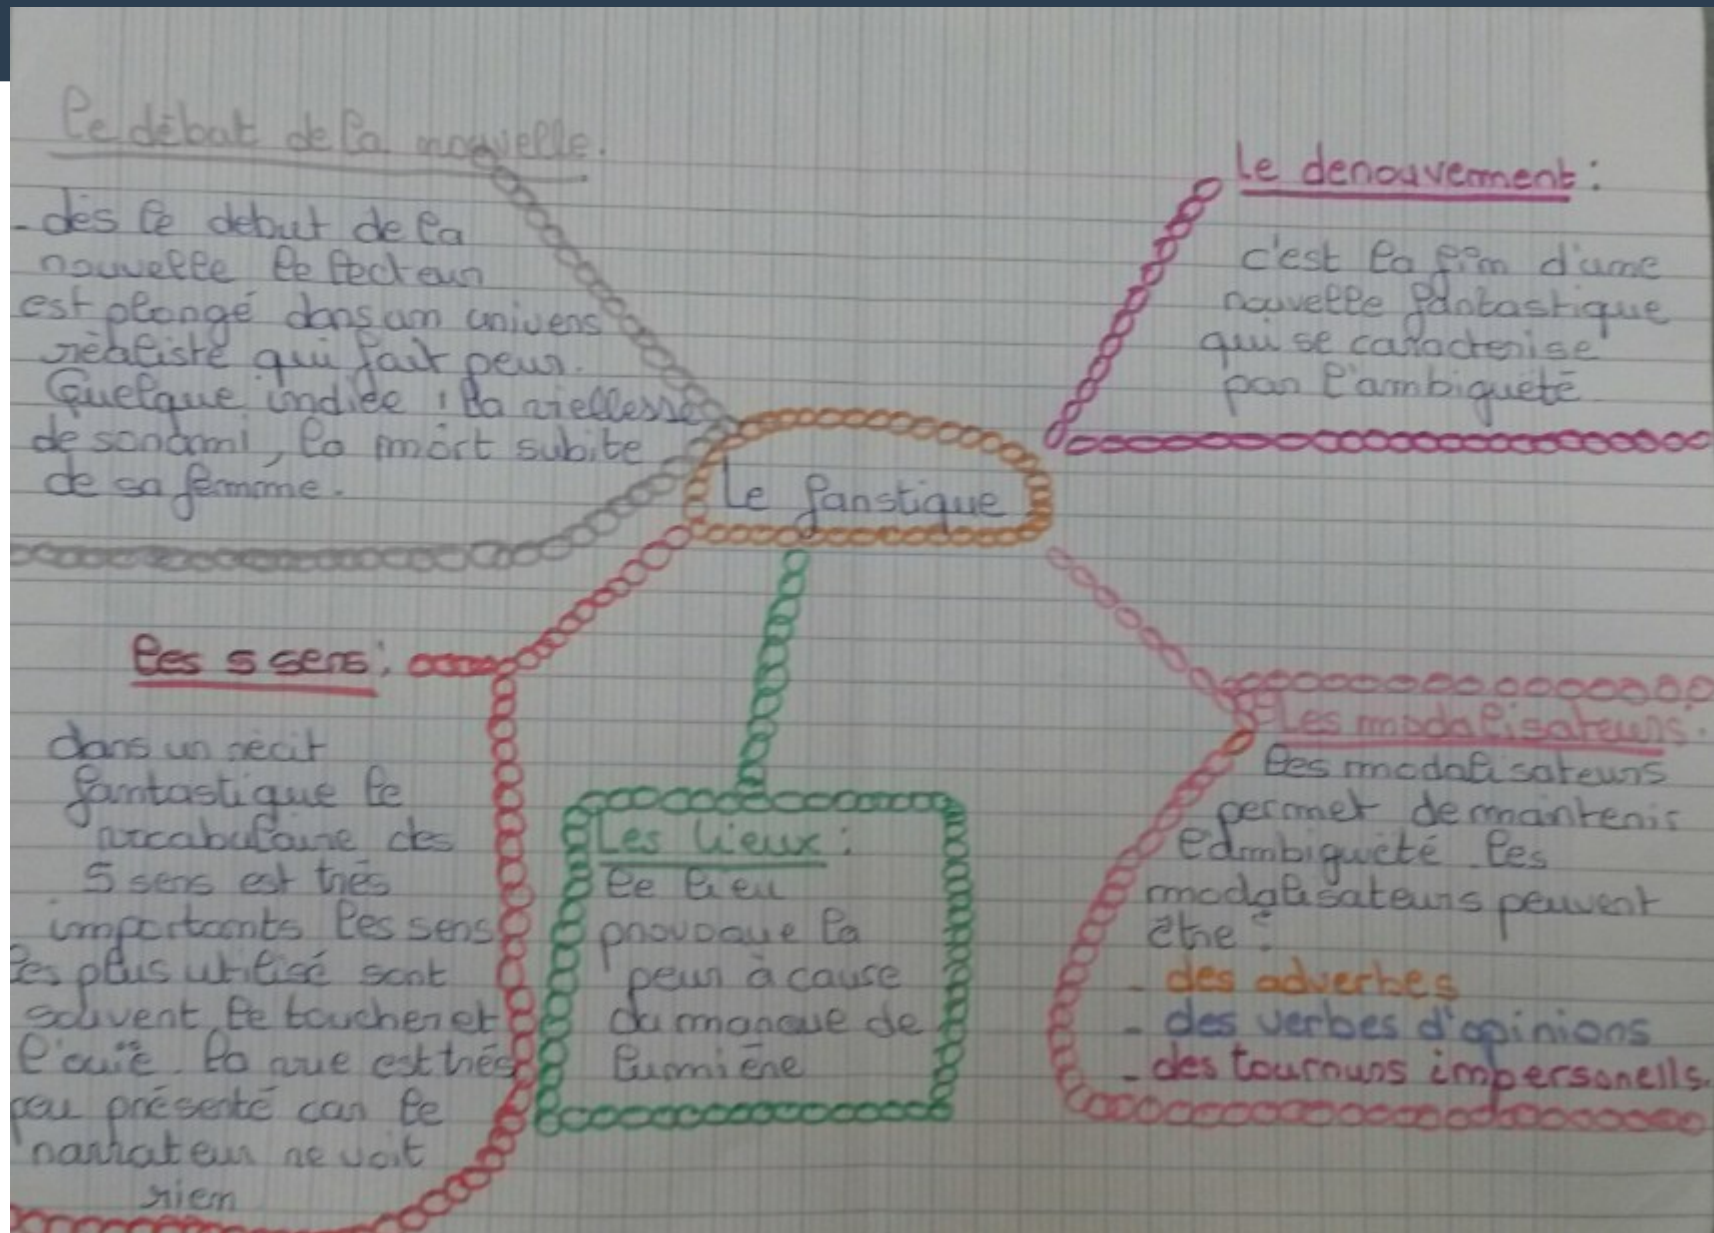 Le débat de la nouvelle.
- dès le debut de la
nouvelle le lecteur
est plongé dans un univers
réaliste qui fait peur.
Quelque indice : la viellesse
de son ami, la mort subite
de sa femme.
Le denouvement :
c'est la fin d'une
nouvelle fantastique
qui se caracterise
par l'ambigueté
Le fanstique
les 5 sens :
dans un récit
fantastique le
vocabulaire des
5 sens est très
importants les sens
les plus utilisé sont
souvent le toucher et
l'ouïe. la vue est très
peu présenté car le
narrateur ne voit
rien
Les lieux :
le lieu
provoque la
peur à cause
du manque de
lumière
Les modalisateurs.
les modalisateurs
permet de maintenir
l'ambigueté les
modalisateurs peuvent
être :
- des adverbes
- des verbes d'opinions
- des tournurs impersonells.